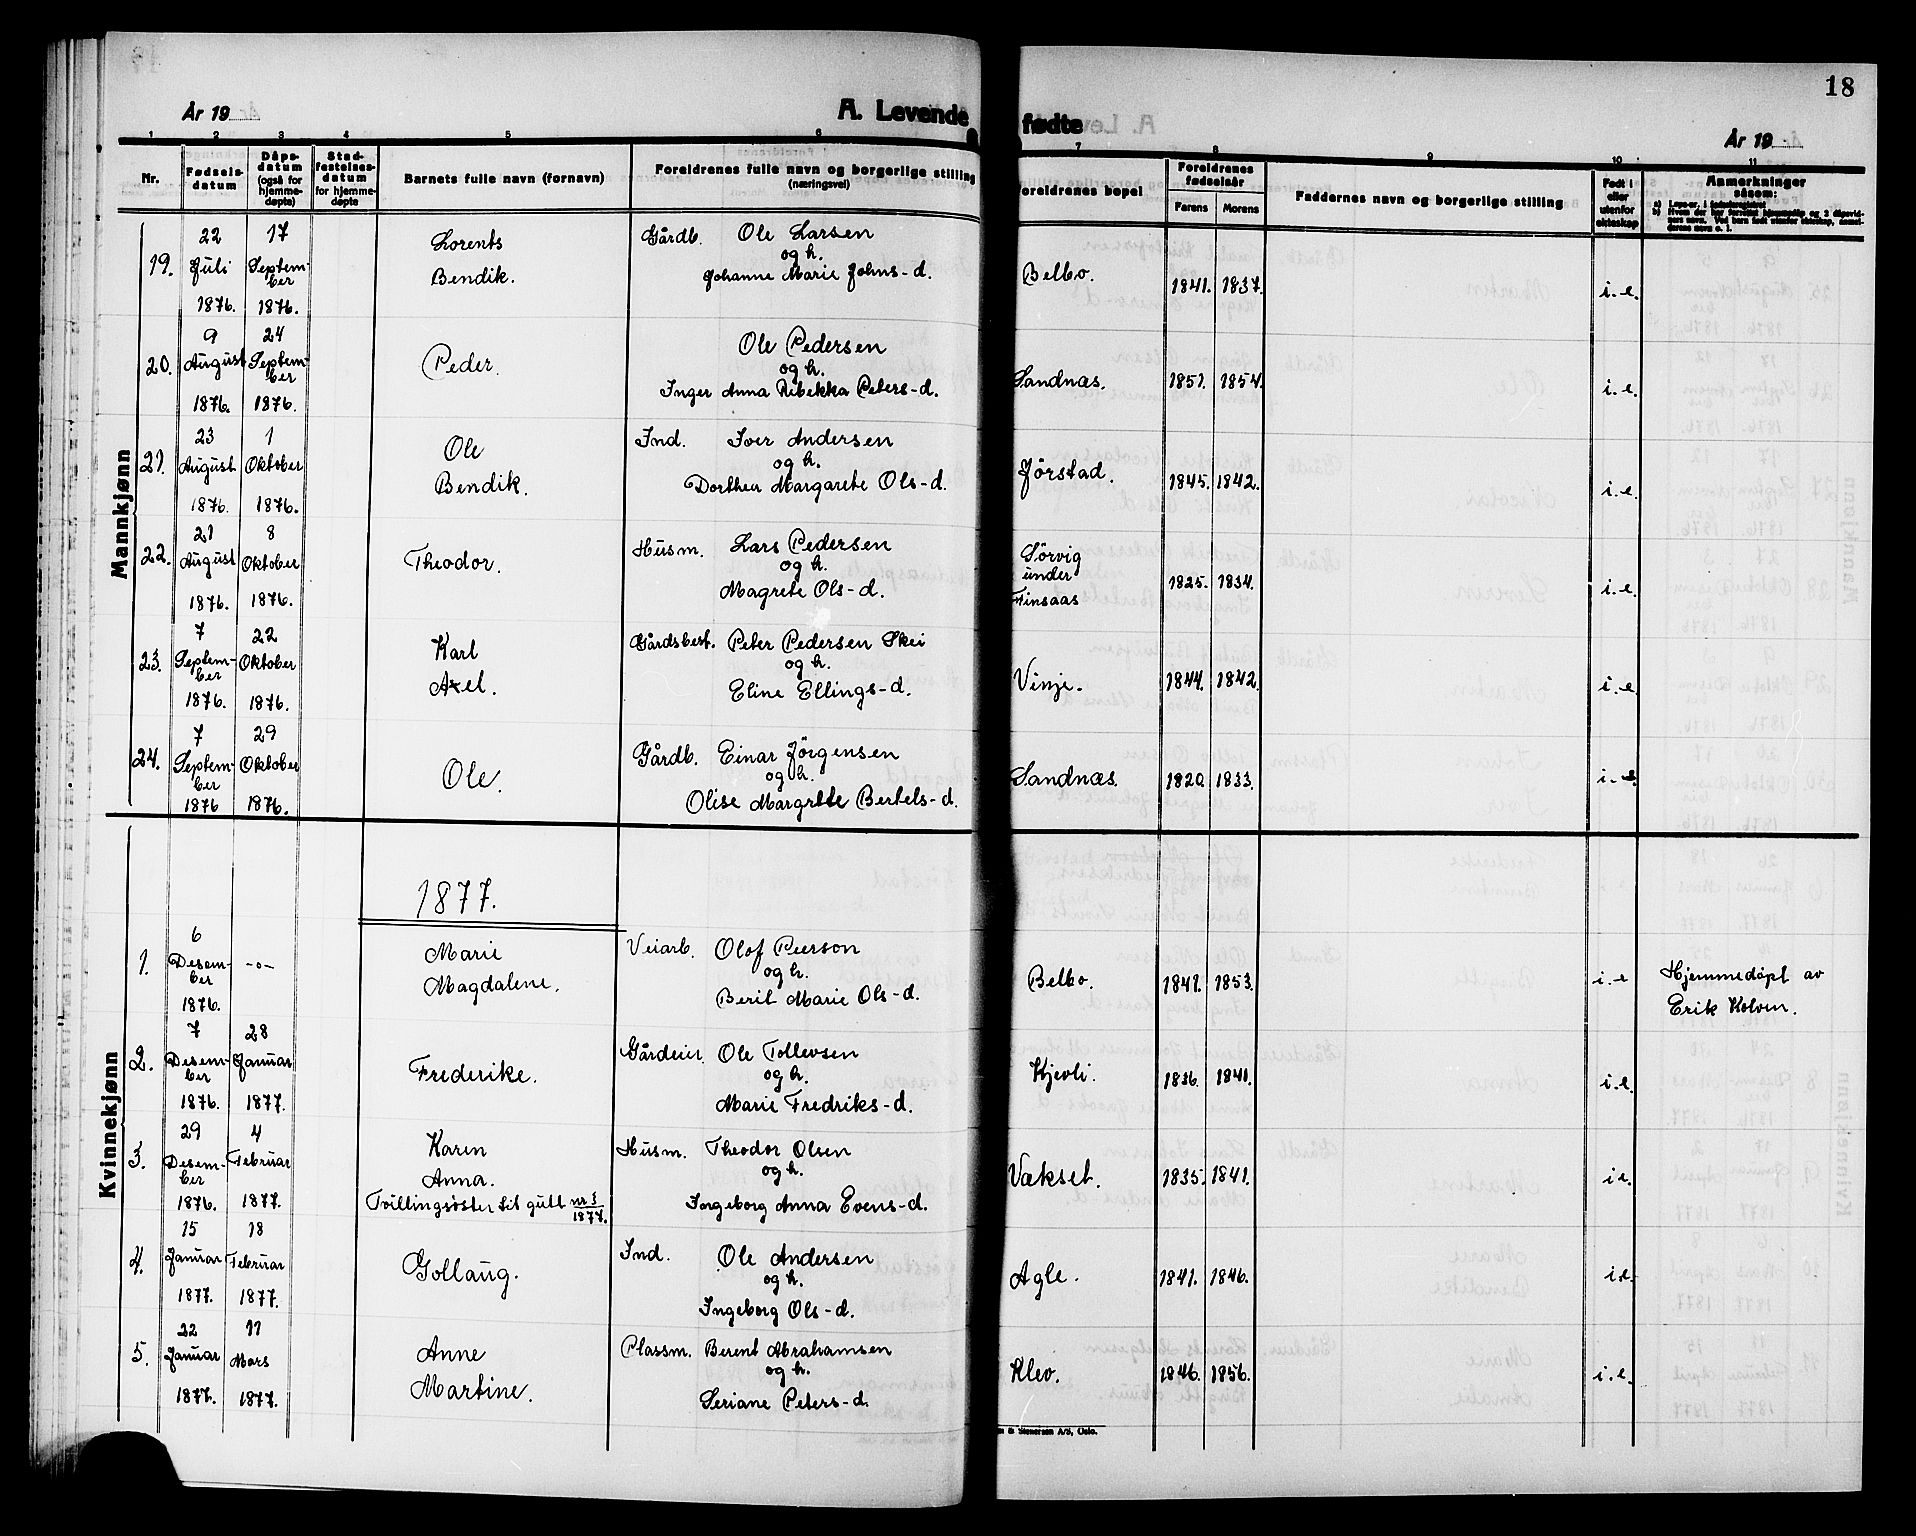 18
År 19
A. Levende fødte
År 19
1 2 3 4 5 6 7 8 9 10 11
Nr.
Fødselsdatum
Dåpsdatum (også for hjemmedøpte)
Stadfestelsesdatum for hjemmedøpte
Barnets fulle navn (fornavn)
Foreldrenes fulle navn og borgerlige stilling (næringsvei)
Foreldrenes bopel
Foreldrenes fødselsår
Farens Morens
Faddernes navn og borgerlige stilling
Født i eller utenfor ekteskap
Anmerkninger såsom:
Mannkjønn
19. 22 Juli 1876. 17 September 1876. Lorents Bendik. Gårdb. Ole Larsen og h. Johanne Marie Johns-d. Belbo. 1841. 1837. i.e.
20. 9 August 1876. 24 September 1876. Peder. Ole Pedersen og h. Inger Anna Ribekka Peters-d. Sandnæs. 1851. 1854. i.e.
21. 23 August 1876. 1 Oktober 1876. Ole Bendik. Ind. Iver Andersen og h. Dorthea Margarete Ols-d. Jørstad. 1845. 1842. i.e.
22. 21 August 1876. 8 Oktober 1876. Theodor. Husm. Lars Pedersen og h. Magrete Ols-d. Sörvig under Finsaas 1825. 1834. i.e.
23. 7 September 1876. 22 Oktober 1876. Karl Axel. Gårdsbest. Peter Pedersen Skei og h. Eline Ellings-d. Vinje. 1844. 1842. i.e.
24. 7 September 1876 29 Oktober 1876. Ole. Gårdb. Einar Jörgensen og h. Olise Margrete Bertels-d. Sandnæs. 1820. 1833. i.e.
1877.
Kvinnekjønn
1. 6 Desember 1876. -o- Marie Magdalene. Veiarb. Olof Peerson og h. Berit Marie Ols-d. Belbo. 1841. 1853. i.e Hjemmedöpt av Erik Kolven.
2. 7 Desember 1876. 28 Januar 1877. Frederike. Gårdeier. Ole Tollevsen og h. Marie Fredriks-d. Kjevli. 1836. 1840. i.e.
3. 29 Desember 1876. 4 Februar 1877. Karen Anna. Tvillingsöster til gutt nr 3/1877. Husm. Theodor Olsen og h. Ingeborg Anna Evens-d. Vækset. 1835. 1841. i.e.
4. 15 Januar 1877. 18 Februar 1877. Gollaug. Ind. Ole Andersen og h. Ingeborg Ols-d. Agle. 1841. 1846. i.e.
5. 22 Januar 1877. 11 Mars 1877. Anne Martine. Plassm. Berent Abrahamsen og h. Seriane Peters-d. Klev. 1846. 1856. i.e.
& Stenersen A/S, Oslo.